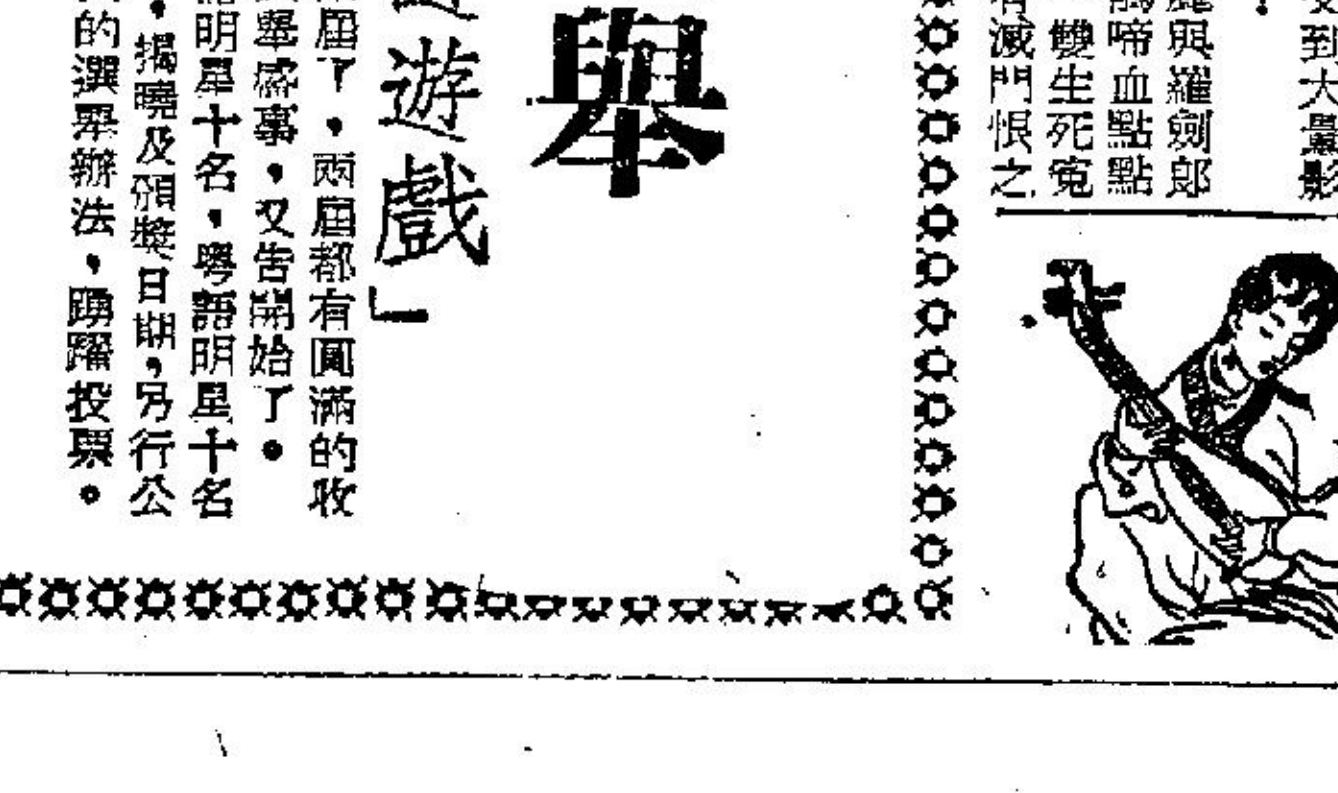 到大量影
與羅劍郎
啼血點點
雙生死寃
滅門恨之
舉
遊戲」
屆了，兩屆都有圓滿的收
舉盛事，又告開始了。
明星十名，粵語明星十名
，揭曉及頒獎日期，另行公
的選舉辦法，踴躍投票。